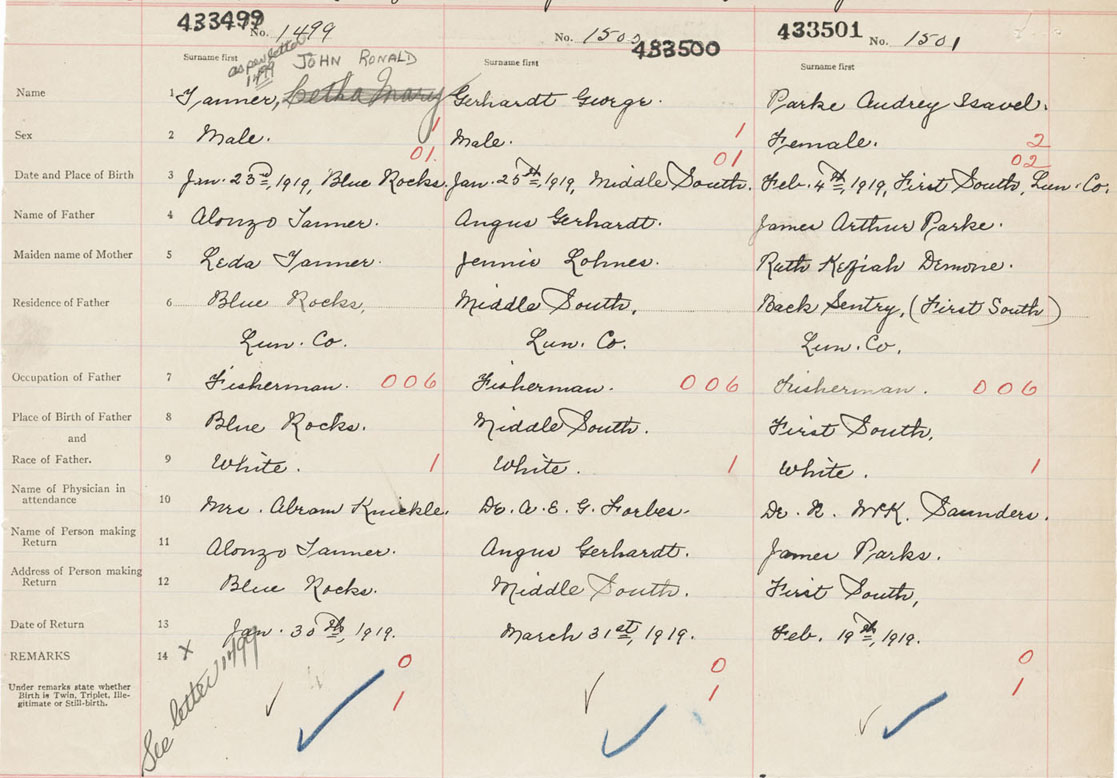 433499 No. 1499 No. 1500 433500 433501 No. 1501
as per letter 1499 JOHN RONALD
Surname first Surname first Surname first
Name 1 Tanner, Letha Mary Gerhardt George. Parke Audrey Isavel.
Sex 2 Male. 1 Male. 1 Female. 2
01. 01 02
Date and Place of Birth 3 Jan. 23rd, 1919, Blue Rocks. Jan. 25th, 1919, Middle South. Feb. 4th, 1919, First South, Lun. Co.
Name of Father 4 Alonzo Tanner. Angus Gerhardt. James Arthur Parke.
Maiden name of Mother 5 Leda Tanner. Jennie Lohnes. Ruth Keziah Demone.
Residence of Father 6 Blue Rocks, Middle South, Back Sentry, (First South)
Lun. Co. Lun. Co. Lun. Co.
Occupation of Father 7 Fisherman. 006 Fisherman. 006 Fisherman. 006
Place of Birth of Father 8 Blue Rocks. Middle South. First South,
and
Race of Father. 9 White. 1 White. 1 White. 1
Name of Physician in
attendance 10 Mrs. Abram Knickle. Dr. A. E. G. Forbes. Dr. Saunders.
Name of Person making
Return 11 Alonzo Tanner. Angus Gerhardt. James Parks.
Address of Person making
Return 12 Blue Rocks. Middle South. First South,
Date of Return 13 Jan. 30th, 1919. March 31st, 1919. Feb. 19th, 1919.
REMARKS 14 X 0 0 0
Under remarks state whether
Birth is Twin, Triplet, Ille-
gitimate or Still-birth. 1 1 1
See letter 1499